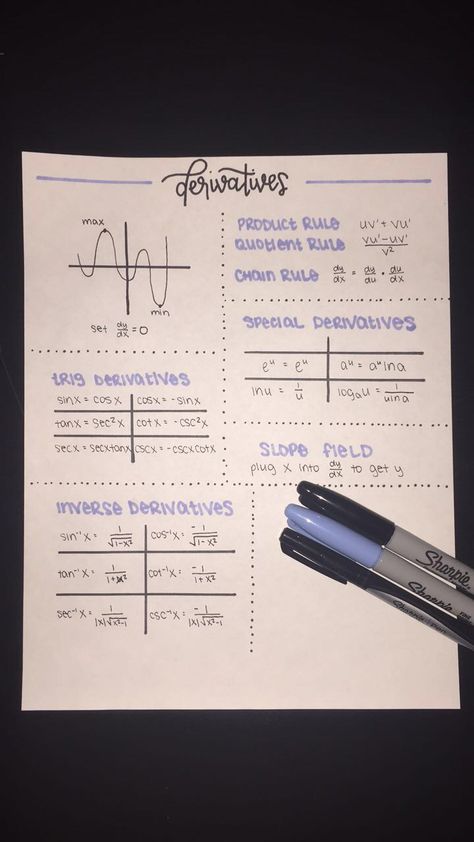 derivatives
max
min
set dy/dx = 0
PRODUCT RULE uv' + vu'
QUOTIENT RULE vu' - uv' / v²
CHAIN RULE dy/dx = dy/du · du/dx
SPECIAL DERIVATIVES
eᵘ = eᵘ aᵘ = aᵘ ln a
ln u = 1/u logₐu = 1/u ln a
TRIG DERIVATIVES
sinx = cosx cosx = -sinx
tanx = sec²x cotx = -csc²x
secx = secxtanx cscx = -cscxcotx
SLOPE FIELD
plug x into dy/dx to get y
INVERSE DERIVATIVES
sin⁻¹x = 1/√1-x² cos⁻¹x = -1/√1-x²
tan⁻¹x = 1/1+x² cot⁻¹x = -1/1+x²
sec⁻¹x = 1/|x|√x²-1 csc⁻¹x = -1/|x|√x²-1
Sharpie
Sharpie
Sharpie